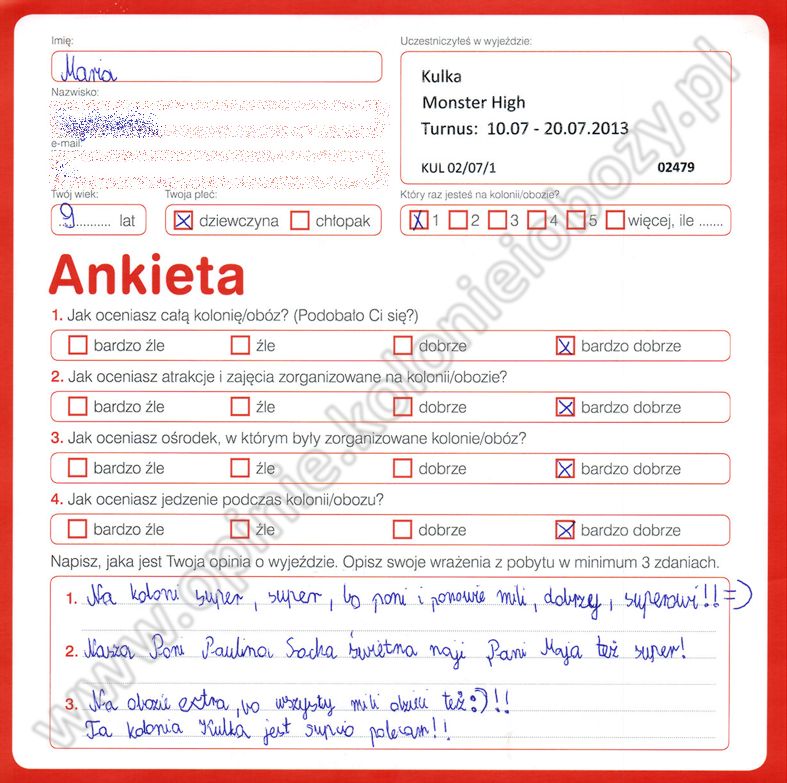 Imię:
Uczestniczyłeś w wyjeździe:
Maria
Kulka
Nazwisko:
Monster High
Turnus: 10.07 - 20.07.2013
e-mail:
KUL 02/07/1 02479
Twój wiek:
Twoja płeć:
Który raz jesteś na kolonii/obozie?
9 lat
dziewczyna chłopak
1 2 3 4 5 więcej, ile .......
Ankieta
1. Jak oceniasz całą kolonię/obóz? (Podobało Ci się?)
bardzo źle źle dobrze bardzo dobrze
2. Jak oceniasz atrakcje i zajęcia zorganizowane na kolonii/obozie?
bardzo źle źle dobrze bardzo dobrze
3. Jak oceniasz ośrodek, w którym były zorganizowane kolonie/obóz?
bardzo źle źle dobrze bardzo dobrze
4. Jak oceniasz jedzenie podczas kolonii/obozu?
bardzo źle źle dobrze bardzo dobrze
Napisz, jaka jest Twoja opinia o wyjeździe. Opisz swoje wrażenia z pobytu w minimum 3 zdaniach.
1. Na koloni super, super, bo pani i panowie mili, dobrzy, superowi!! =)
2. Nasza Pani Paulina Sacha świetna naji Pani Maja też super!
3. Na obozie extra, bo wszysty mili dzieci też :)!!
Ta kolonia Kulka jest polecam!!
www.opinie.kolonieiobozy.pl